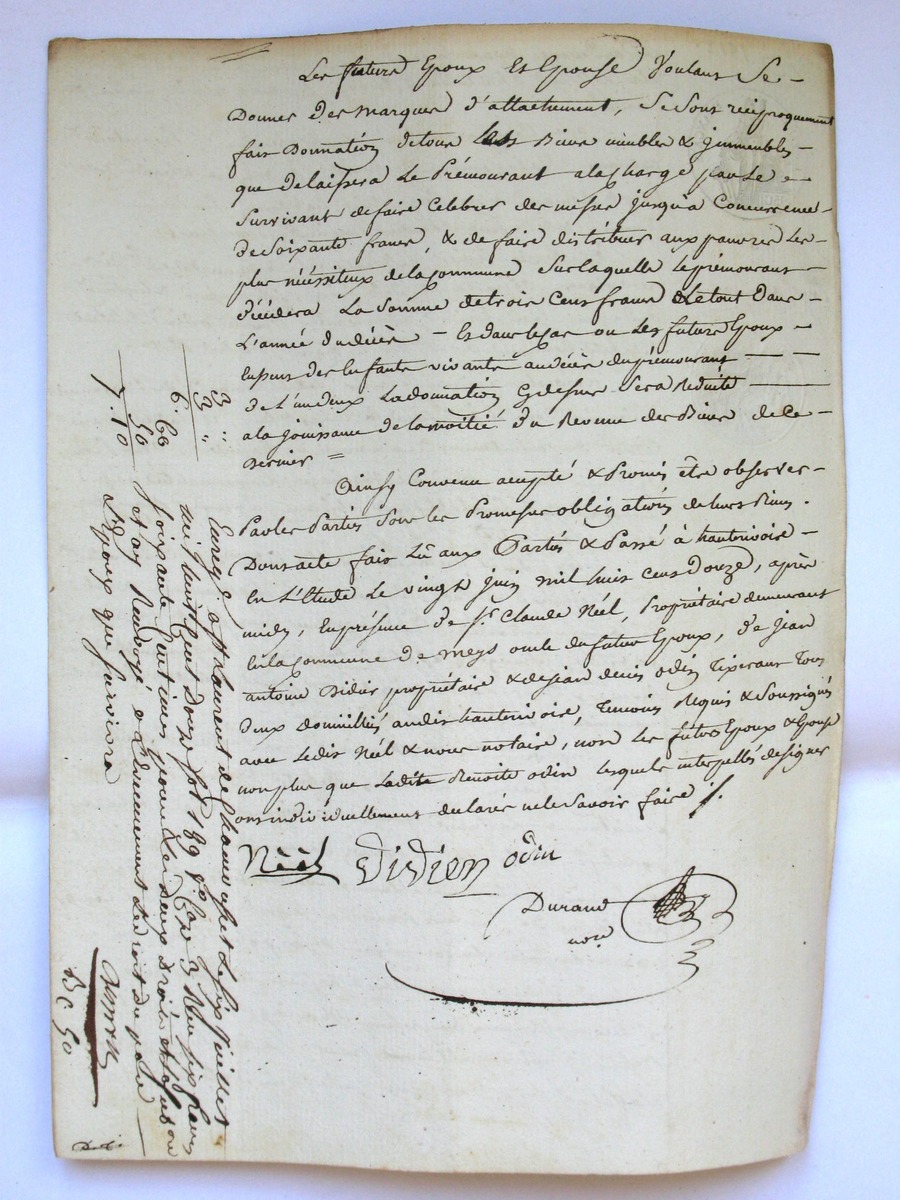 Les futurs Epoux Et Epouse Voulant Se
Donner Des marques D'attachement, Se Sont réciproquement
fait Donnation detous les Biens meubles & immeubles
que delaissera Le Prémourant alacharge par Le
Survivant defaire Celebrer des messes jusqu'à Concurrence
De Soixante francs, & de faire distribuer aux pauvres Les
plus nécessiteux delacommune Surlaquelle Leprémourant
décédera La Somme detrois Cent francs & Letout Dans
L'année du décès - Et dans lecas ou Les futurs Epoux
Eussent des Enfants vivants audécès duprémourant
de L'undeux Ladonnation Cydessus Sera Réduite
alajouissance delamoitié du Revenu des Biens de Ce
Dernier =
Ainsy Convenu accepté & Promis être observer
Par les Parties Sous les Promesses obligations de leurs Biens.
Dont acte fait Lû aux Parties & Passé à hauterivoire
En L'Etude Le vingt juin mil huit Cent Douze, après
midy, En présence de Sr Claude Néel, Propriétaire demeurant
En la Commune de meys oncle du futur Epoux, de jean
antoine Didier propriétaire & dejean denis odin Tixerant Tous
Deux domiciliés audit hauterivoire, Temoins Requis & Soussignés
avec Ledit Néel & nous notaire, non les futurs Epoux & Epouse
non plus que Ladite Benoite odin lesquels interpellés de signer
ont individuellement declarés ne le Savoir faire ./.
Néèl Didier odin
Durand
nore
3 "
3 "
6. 60
50
7. 10
Enreg. à St Laurent de Chamousset Le Six Juillet
mil huit Cent Douze fol 189 Vo Case 3 Reçu Six francs
soixante Centimes pour Les deux droits et subon
et ay Renvoyé
L'Epoux que Survivra